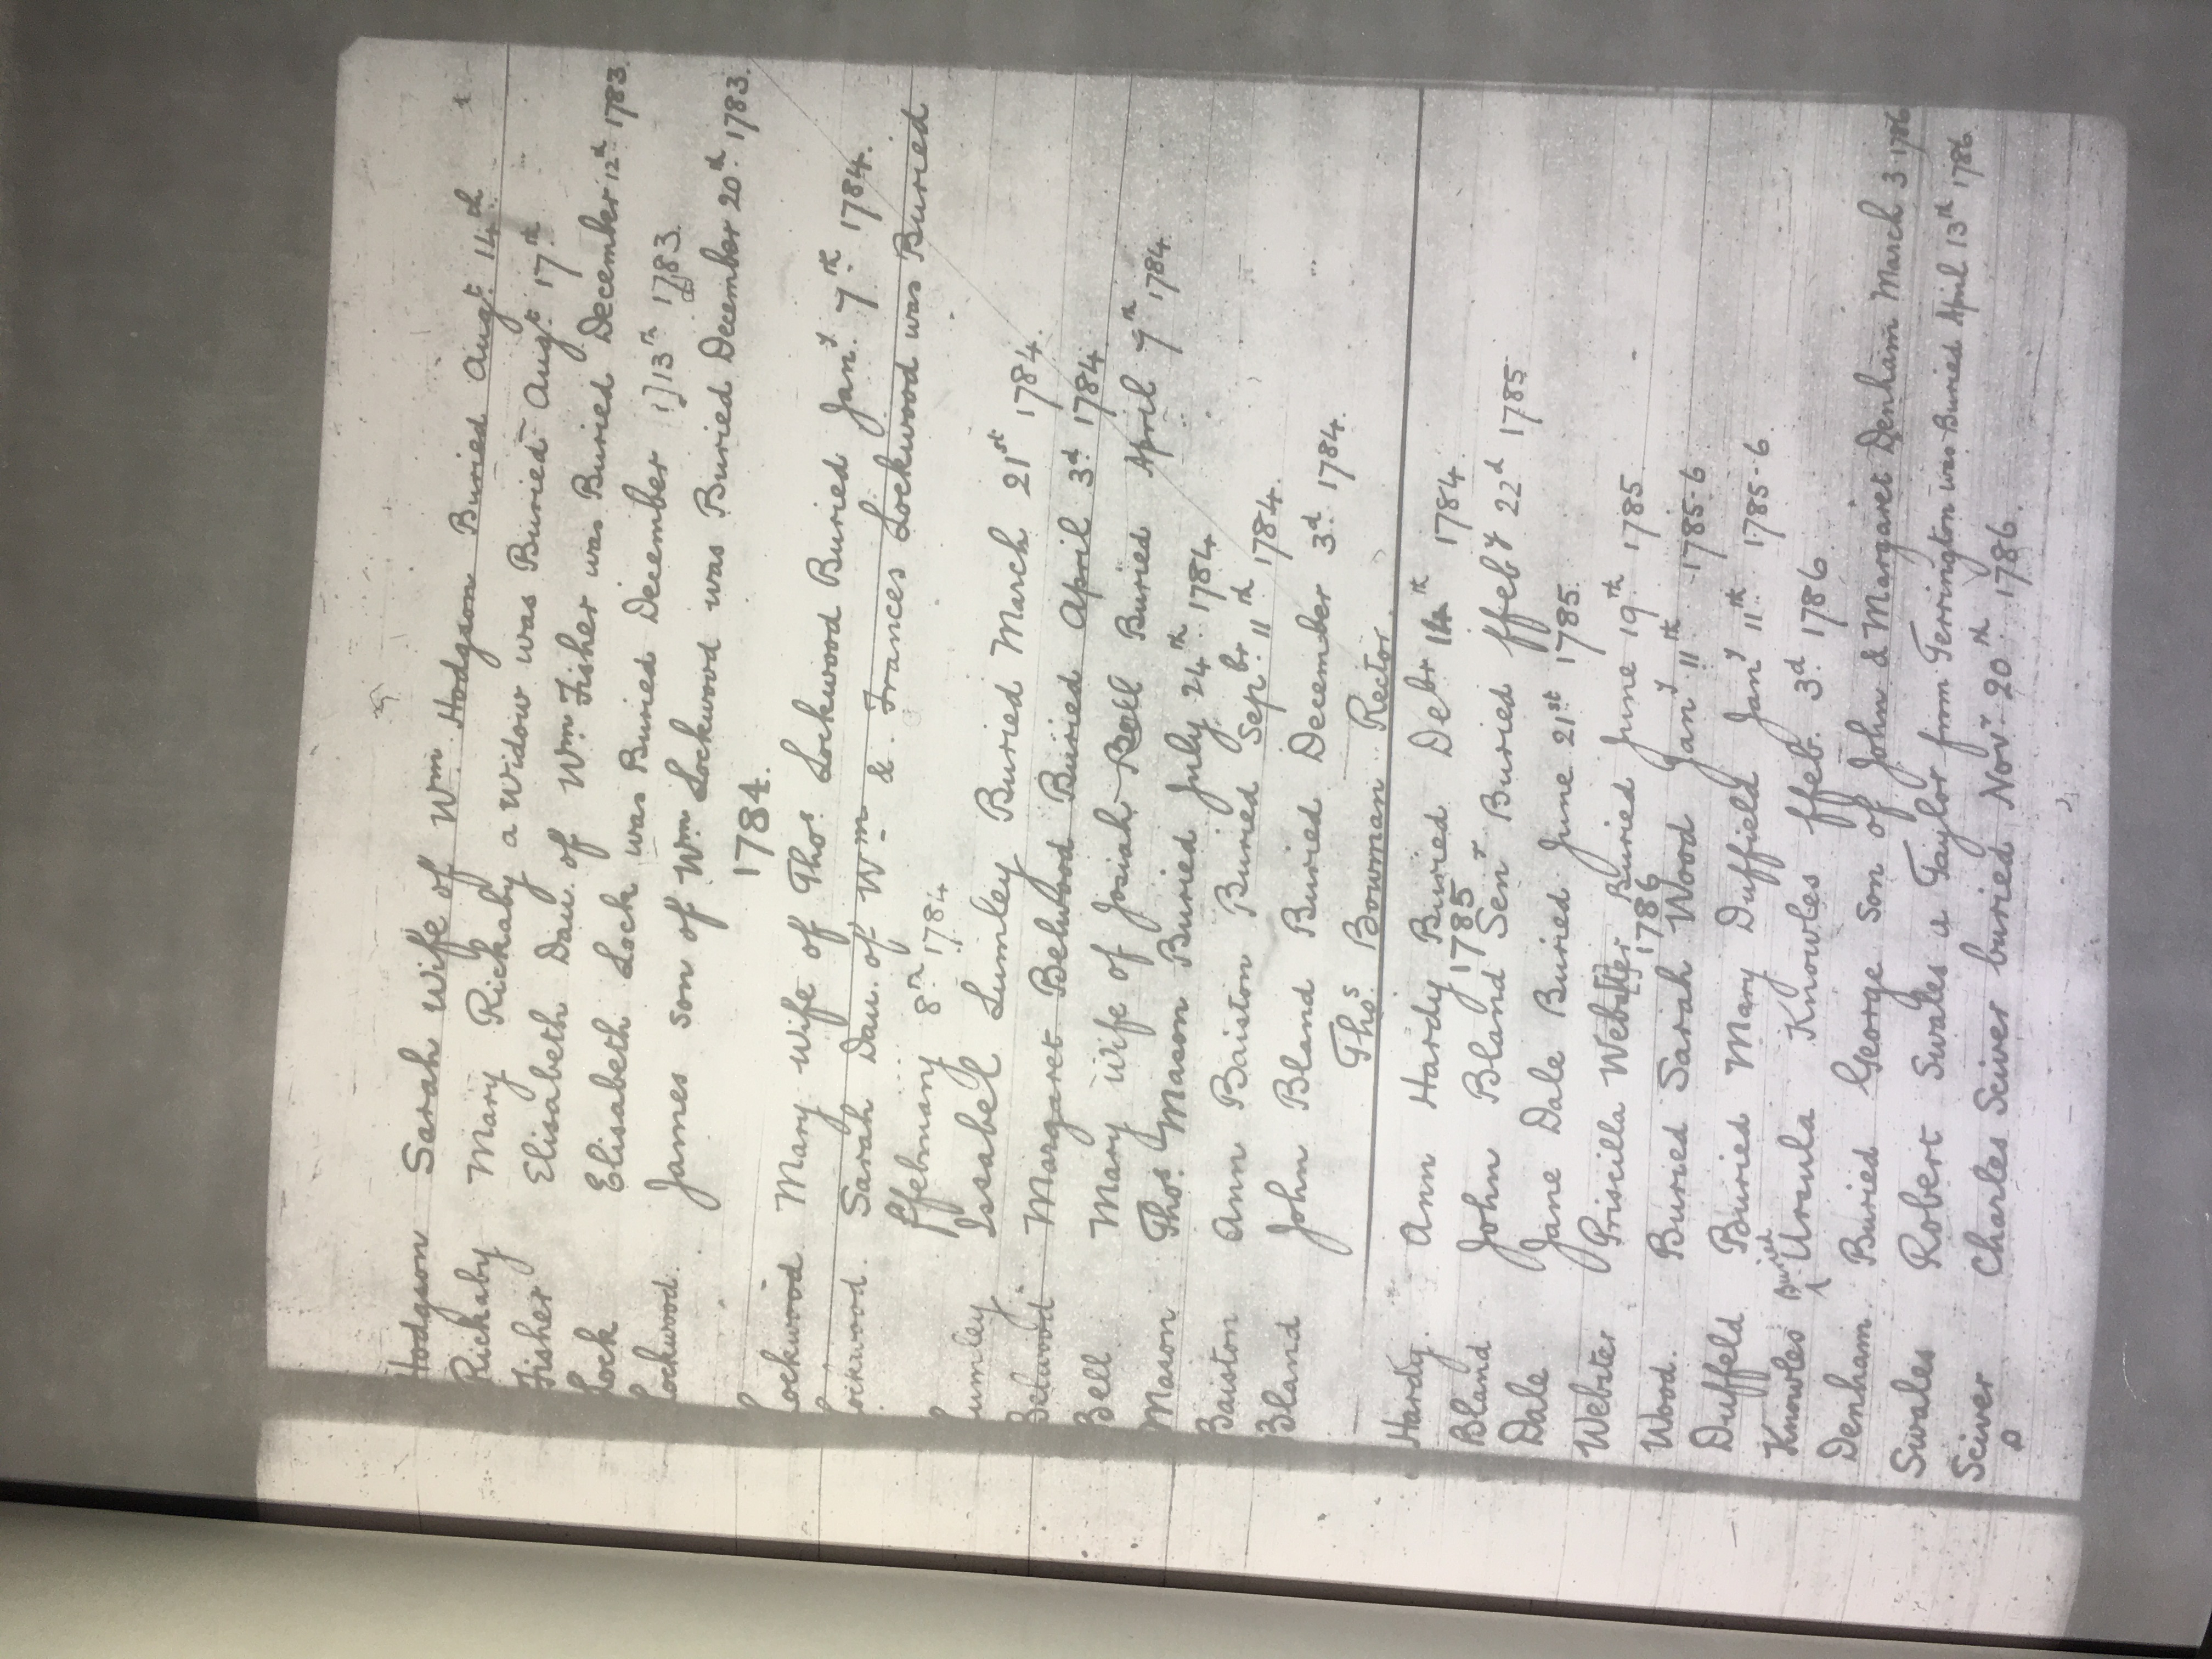 Hodgson Sarah Wife of Wm. Hodgson Buried Augt. 14th
Rickaby Mary Rickaby a Widow was Buried Augt. 17th
Fisher Elisabeth Dau. of Wm. Fisher was Buried December 12th 1783.
Lock Elisabeth Lock was Buried December 13th 1783.
Lockwood. James Son of Wm. Lockwood was Buried December 20th 1783.
1784.
Lockwood Mary Wife of Thos. Lockwood Buried Jany. 7th 1784.
Lockwood. Sarah Dau. of Wm. & Frances Lockwood was Buried
ffebruary 8th 1784
Lumley Issabel Lumley Buried March 21st 1784.
Belwood Margaret Belwood Buried April 3d 1784
Bell Mary Wife of Josiah Bell Buried April 9th 1784.
Mason Thos. Mason Buried July 24th 1784
Baiston Ann Baiston Buried Sepbr 11th 1784.
Bland John Bland Buried December 3d 1784.
Thos. Bowman Rector.
Hardy. Ann Hardy Buried Debr 14th 1784
1785
Bland John Bland Senr Buried ffeby 22d 1785
Dale Jane Dale Buried June 21st 1785.
Webster Priscilla Webster Buried June 19th 1785
1786
Wood. Buried Sarah Wood Jany 11th 1785-6
Duffeld Buried Mary Duffield Jany 11th 1785-6
Knowles Buried Ursula Knowles ffeb. 3d 1786
Denham Buried George Son of John & Margaret Denham March 3 1786
Swales Robert Swales a Taylor from Terrington was Buried April 13th 1786
Sciver Charles Sciver buried Novr. 20th 1786.